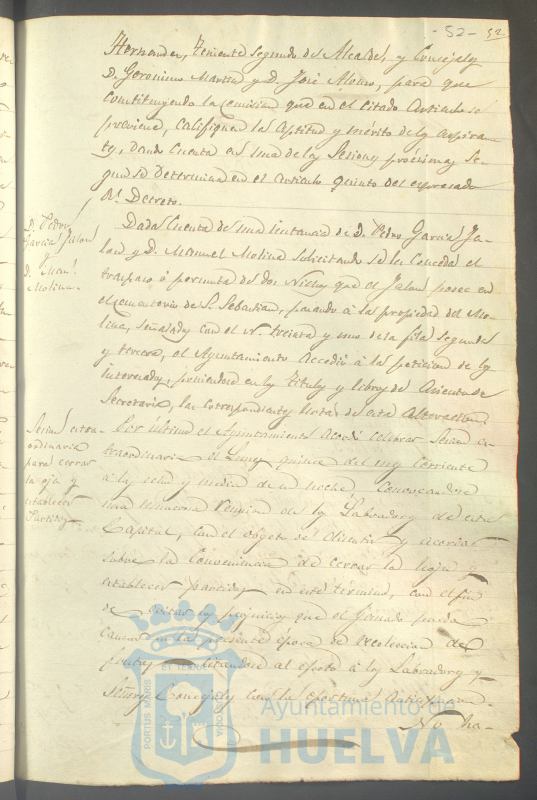 - 52 -
52
Hernandez, Teniente segundo de Alcalde, y Concejales
D. Geronimo Martin y D. José Alonso, para que
constituyendo la comision que en el citado articulo se
previene, califiquen la aptitud y mérito de los aspiran-
tes, dando cuenta en una de las sesiones procsimas se-
gun se determina en el articulo quinto del espresado
Rl. Decreto.
D. Pedro
Garcia Jalon
y
D. Manl.
Molina
Dada cuenta de una instancia de D. Pedro Garcia Ja-
lon y D. Manuel Molina solicitando se les conceda el
traspaso ó permuta de dos Nichos que el Jalon posee en
el cementerio de S. Sebastian, pasando á la propiedad del Mo-
lina, señalados con el N. treinta y uno de la fila segunda
y tercera, el Ayuntamiento accedió á la peticion de los
interesados, poniendose en los titulos y libros de asiento de
Secretaria, las correspondientes notas de esta alteracion.
Sesion estra-
ordinaria
para cerrar
la oja y
establecer
Partidos
Por ultimo el Ayuntamiento acordó celebrar sesion es-
traordinaria el Lunes quince del mes corriente
á las siete y media de su noche, convocandose
una numerosa reunion de los Labradores de esta
Capital, con el objeto de discutir y acordar
sobre la conveniencia de cerrar la hoja y
establecer partidos en este término, con el fin
de evitar los perjuicios que el ganado pueda
causar en la presente época de recoleccion de
frutos, citandose al efecto á los Labradores y
Señores Concejales con la oportuna anticipacion.
No ha-
PORTUS MARIS
ET TERRÆ
CUSTODIA
Ayuntamiento de
HUELVA